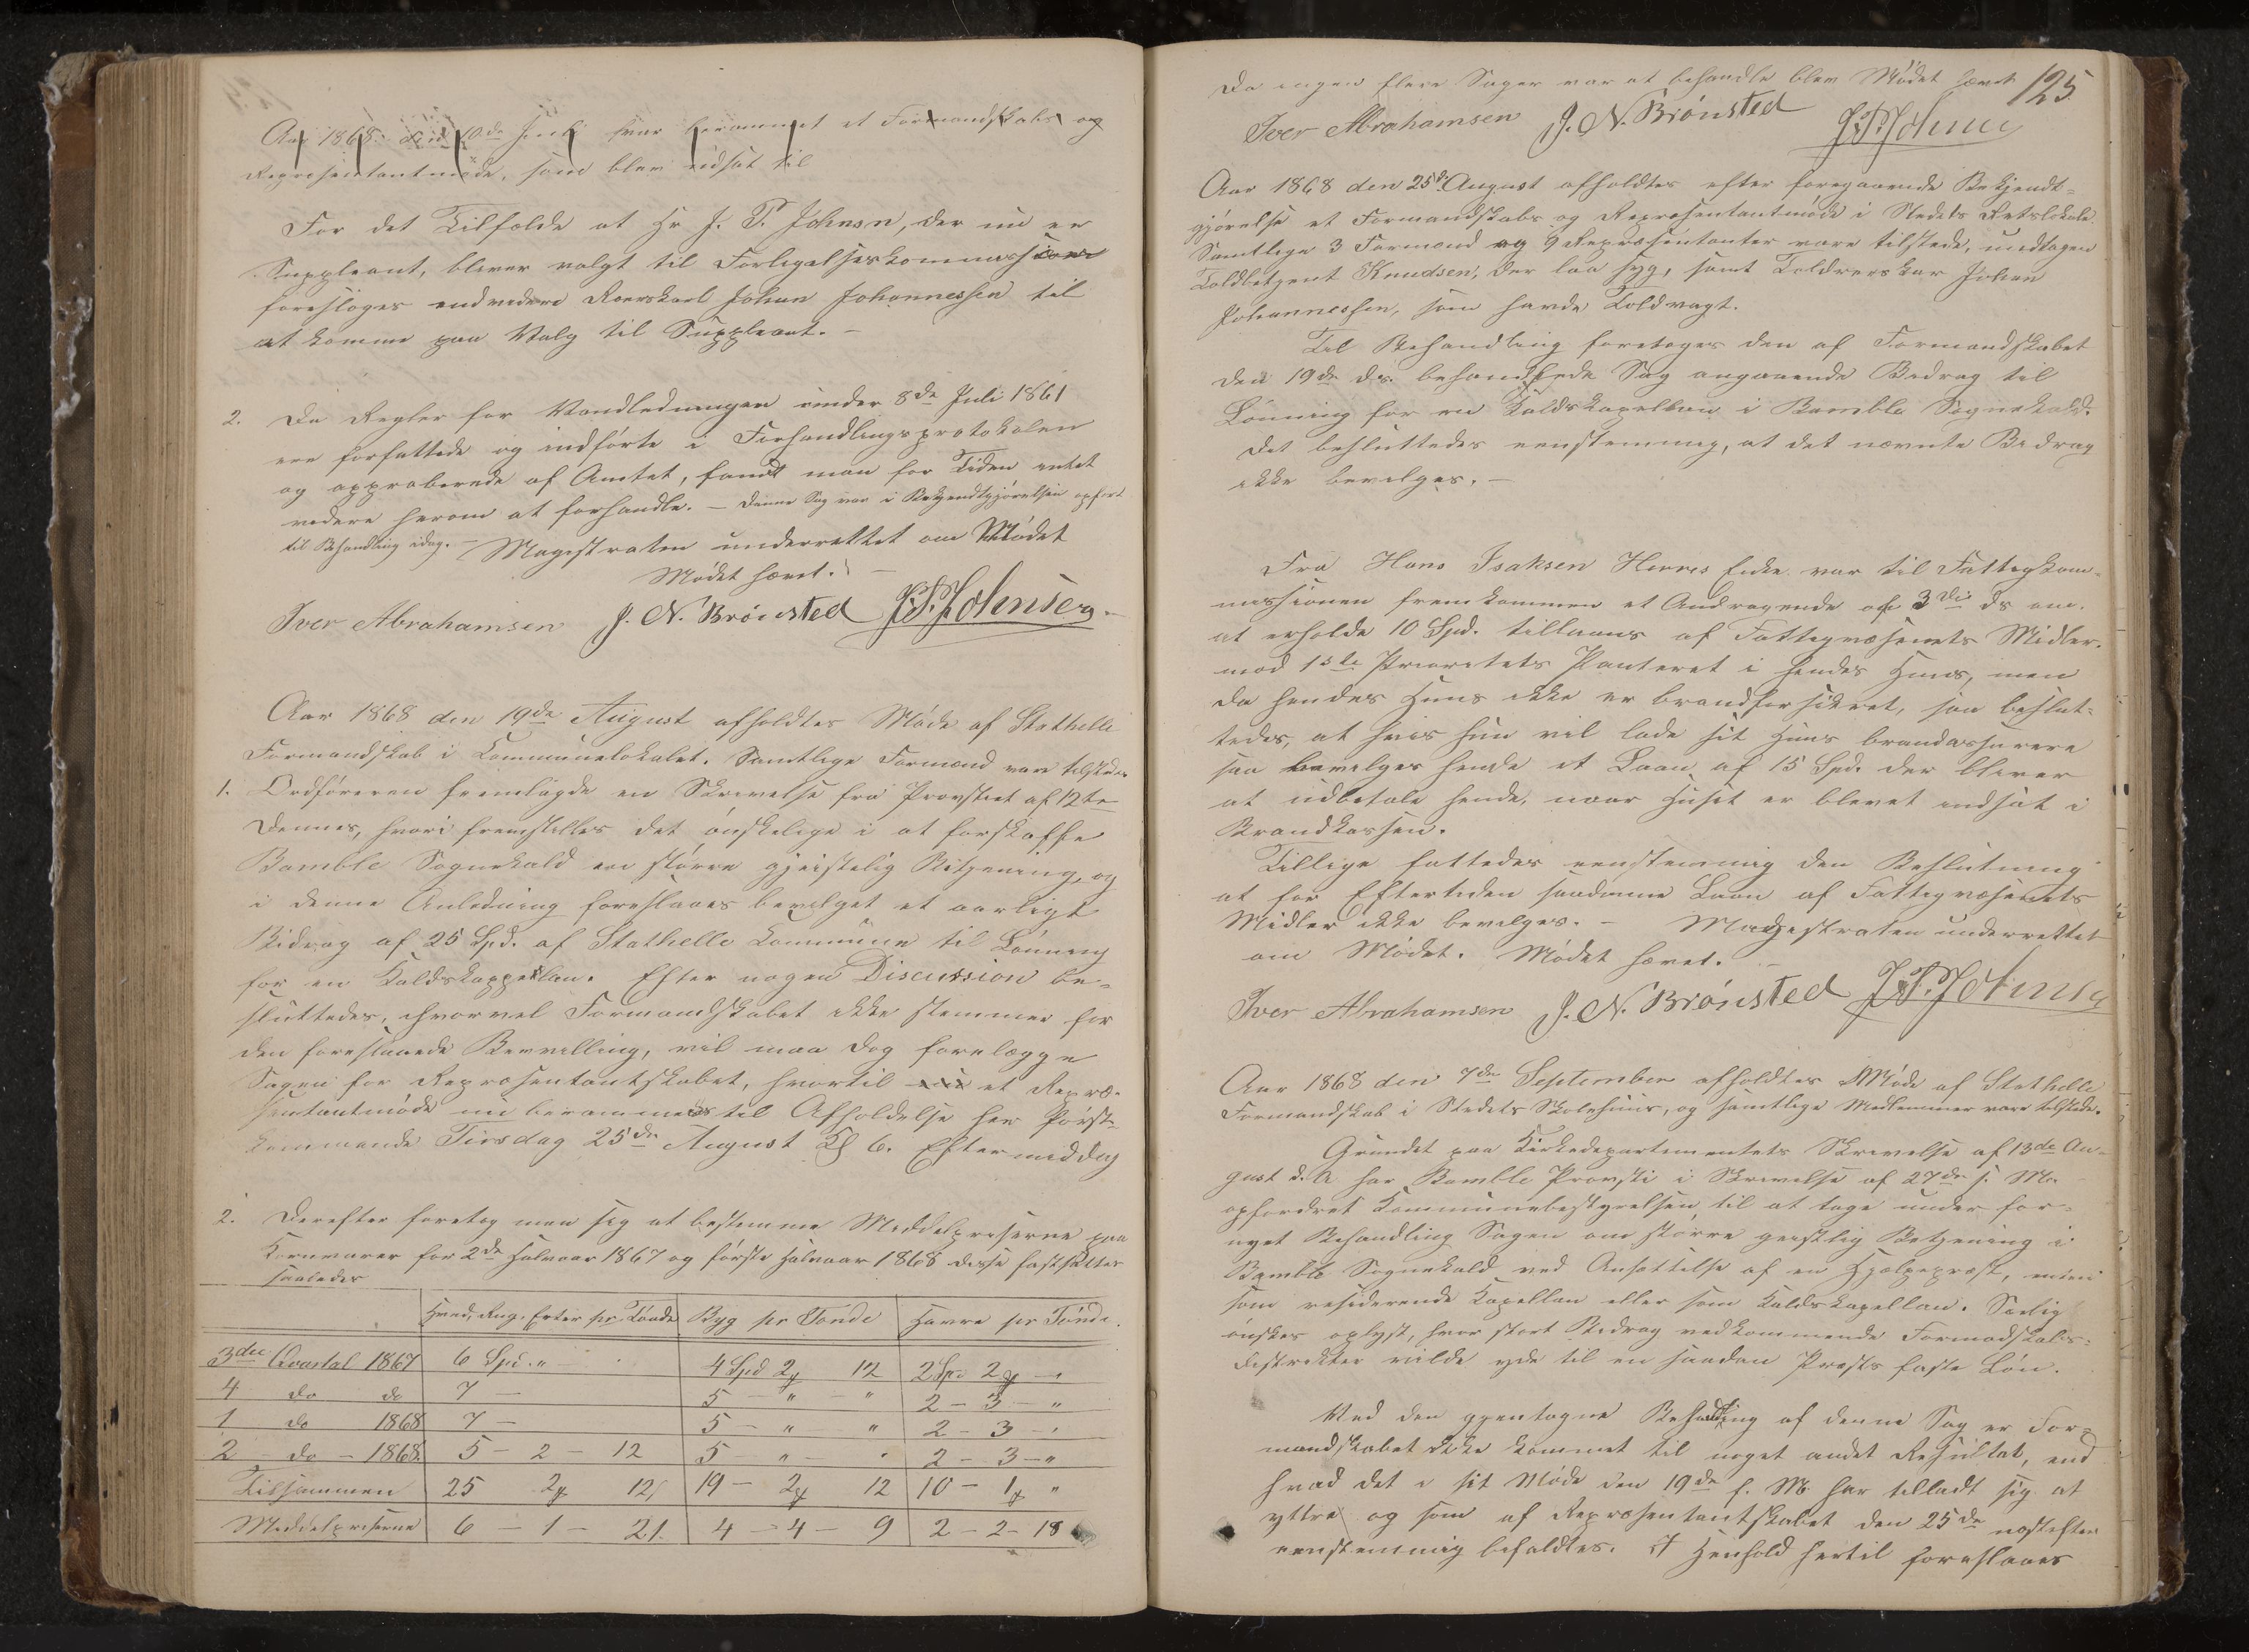 Aar 1868 den 10de Juli var berammet et Formandskabs og
Repræsentantmøde, som blev udsat til
For det Tilfælde at Hr J. P. Johnsen, der nu er
Suppleant, bliver valgt til Forligelseskommissær
foresloges endvidere Roerskarl Johan Johannessen til
at komme paa Valg til Suppleant. –
2. Da Regler for Vandledningen under 8de Juli 1861
ere forfattede og indførte i Forhandlingsprotokolen
og approberede af Amtet, fandt man for Tiden intet
videre herom at forhandle. – Denne Sag var i Bekjendtgjørelsen opført
til Behandling idag. – Magistraten underrettet om Mødet
Mødet hævet. –
Iver Abrahamsen J. N. Brønsted J. P. Johnsen
Aar 1868 den 19de August afholdtes Møde af Stathelle
Formandskab i Kommunelokalet. Samtlige Formænd vare tilstede.
1. Ordføreren fremlagde en Skrivelse fra Provstiet af 12te
dennes, hvori fremstilles det ønskelige i at forskaffe
Bamble Sognekald en større gjeistelig Betjening, og
i denne Anledning foreslaaes bevilget et aarligt
Bidrag af 25 Spd. af Stathelle Kommune til Lønning
for en Kaldskappellan. Efter nogen Discussion be-
sluttedes, hvorvel Formandskabet ikke stemmer for
den foreslaaede Bevilling, vil man dog forelægge
Sagen for Repræsentantskabet, hvortil et Repræ-
sentantmøde nu berammes til Afholdelse her først-
kommende Tirsdag 25de August Kl 6. Eftermiddag
2. Derefter foretog man sig at bestemme Middelpriserne paa
Kornvarer for 2de Halvaar 1867 og første Halvaar 1868 disse fastsattes
saaledes
Hvede, Rug, Erter pr Tønde Byg pr Tønde Havre pr Tønde.
3die Qvartal 1867 6 Spd. " 4 Spd 2 12 2 Spd 2 – "
4 do do 7 – 5 – " – " 2 – 3 – "
1 do 1868 7 – 5 – " – " 2 – 3 – "
2 – do – 1868. 5 – 2 – 12 5 – " – " 2 – 3 – "
Tilsammen 25 2 12 19 – 2 12 10 – 1 "
Middelpriserne 6 – 1 – 21. 4 – 4 – 9 2 – 2 – 18
125.
Da ingen flere Sager var at behandle blev Mødet hævet
Iver Abrahamsen J. N. Brønsted J. P. Johnsen
Aar 1868 den 25de August afholdtes efter foregaaende Bekjendt-
gjørelse et Formandskabs og Repræsentantmøde i Stedets Retslokale.
Samtlige 3 Formænd og 9 Repræsentanter vare tilstede, undtagen
Toldbetjent Knudsen, der laa syg, samt Toldroerskar Johan
Johannessen, som havde Toldvagt.
Til Behandling foretoges den af Formandskabet
den 19de ds. behandlede Sag angaaende Bidrag til
Lønning for en Kaldskapellan i Bamble Sognekald.
Det besluttedes eenstemmig, at det nævnte Bidrag
ikke bevilges. –
Fra Hans Isaksen Herres Enke var til Fattigkom-
missionen fremkommen et Andragende af 3die ds om
at erholde 10 Spd. tillaans af Fattigvæsenets Midler.
mod 1ste Prioritets Panteret i hendes Huus, men
da hendes Huus ikke er brandforsikret, saa beslut-
tedes, at hvis hun vil lade sit Huus brandassurere
saa bevilges hende et Laan af 15 Spd. der bliver
at udbetale hende, naar Huset er blevet indsat i
Brandkassen.
Tillige fattedes eenstemmig den Beslutning
at for Eftertiden saadanne Laan af Fattigvæsenets
Midler ikke bevilges. – Magistraten underrettet
om Mødet. Mødet hævet. –
Iver Abrahamsen J. N. Brønsted J. P. Johnsen
Aar 1868 den 7de September afholdtes Møde af Stathelle
Formandskab i Stedets Skolehuus, og samtlige Medlemmer vare tilstede.
Grundet paa Kirkedepartementets Skrivelse af 13de Au-
gust d. A har Bamble Provsti i Skrivelse af 27de f. M.
opfordret Kommunebestyrelsen til at tage under for-
nyet Behandling Sagen om større geistlig Betjening i
Bamble Sognekald ved Ansættelse af en Hjælpepræst, enten
som residerende Kapellan eller som Kaldskapellan. Særlig
ønskes oplyst, hvor stort Bidrag vedkommende Formandskabs-
distrikter vilde yde til en saadan Præsts faste Løn.
Ved den gjentagne Behandling af denne Sag er For-
mandskabet ikke kommet til noget andet Resultat, end
hvad det i sit Møde den 19de f. M. har tilladt sig at
yttre og som af Repræsentantskabet den 25de næstefter
eenstemmig bifaldtes. I Henhold hertil foreslaaes